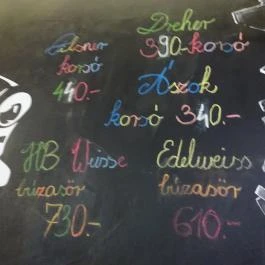 Pilsner
korsó
440.-
Dreher
390-korsó
Ászok
korsó 340.-
HB Weisse
búzasör
730.-
Edelweiss
búzasör
610.-